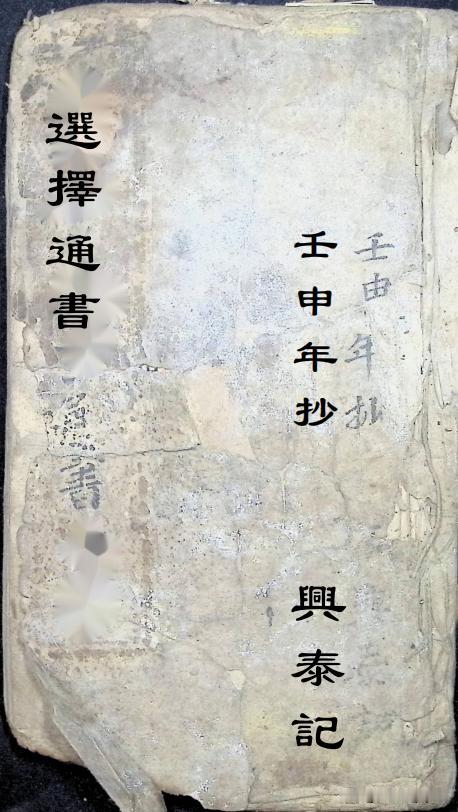 壬申年抄
壬申年抄
興泰記
選擇通書
書